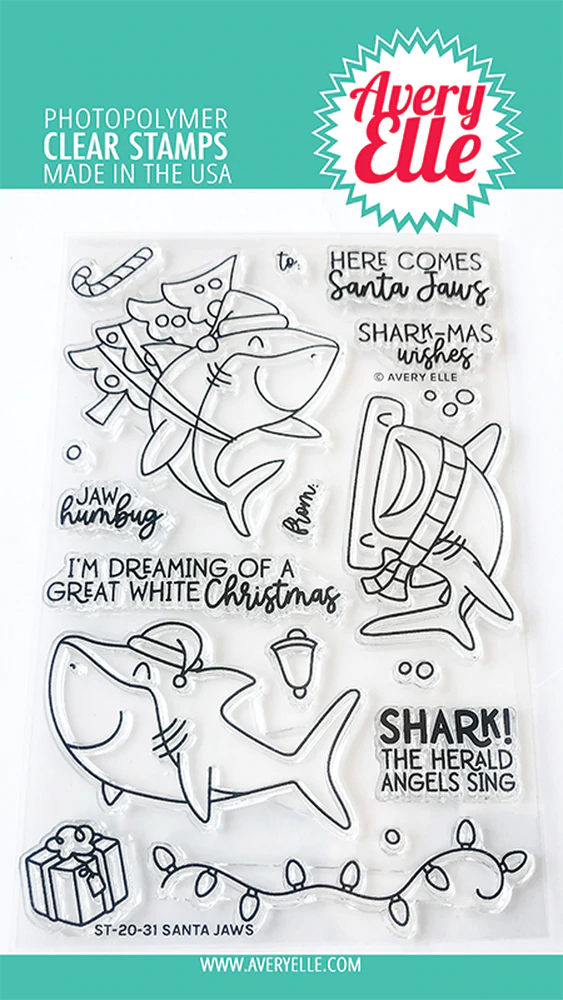 PHOTOPOLYMER
CLEAR STAMPS
MADE IN THE USA
Avery
Elle
to:
HERE COMES
Santa Jaws
SHARK-MAS
wishes
© AVERY ELLE
JAW
humbug
from:
I'M DREAMING OF A
GREAT WHITE Christmas
SHARK!
THE HERALD
ANGELS SING
ST-20-31 SANTA JAWS
WWW.AVERYELLE.COM